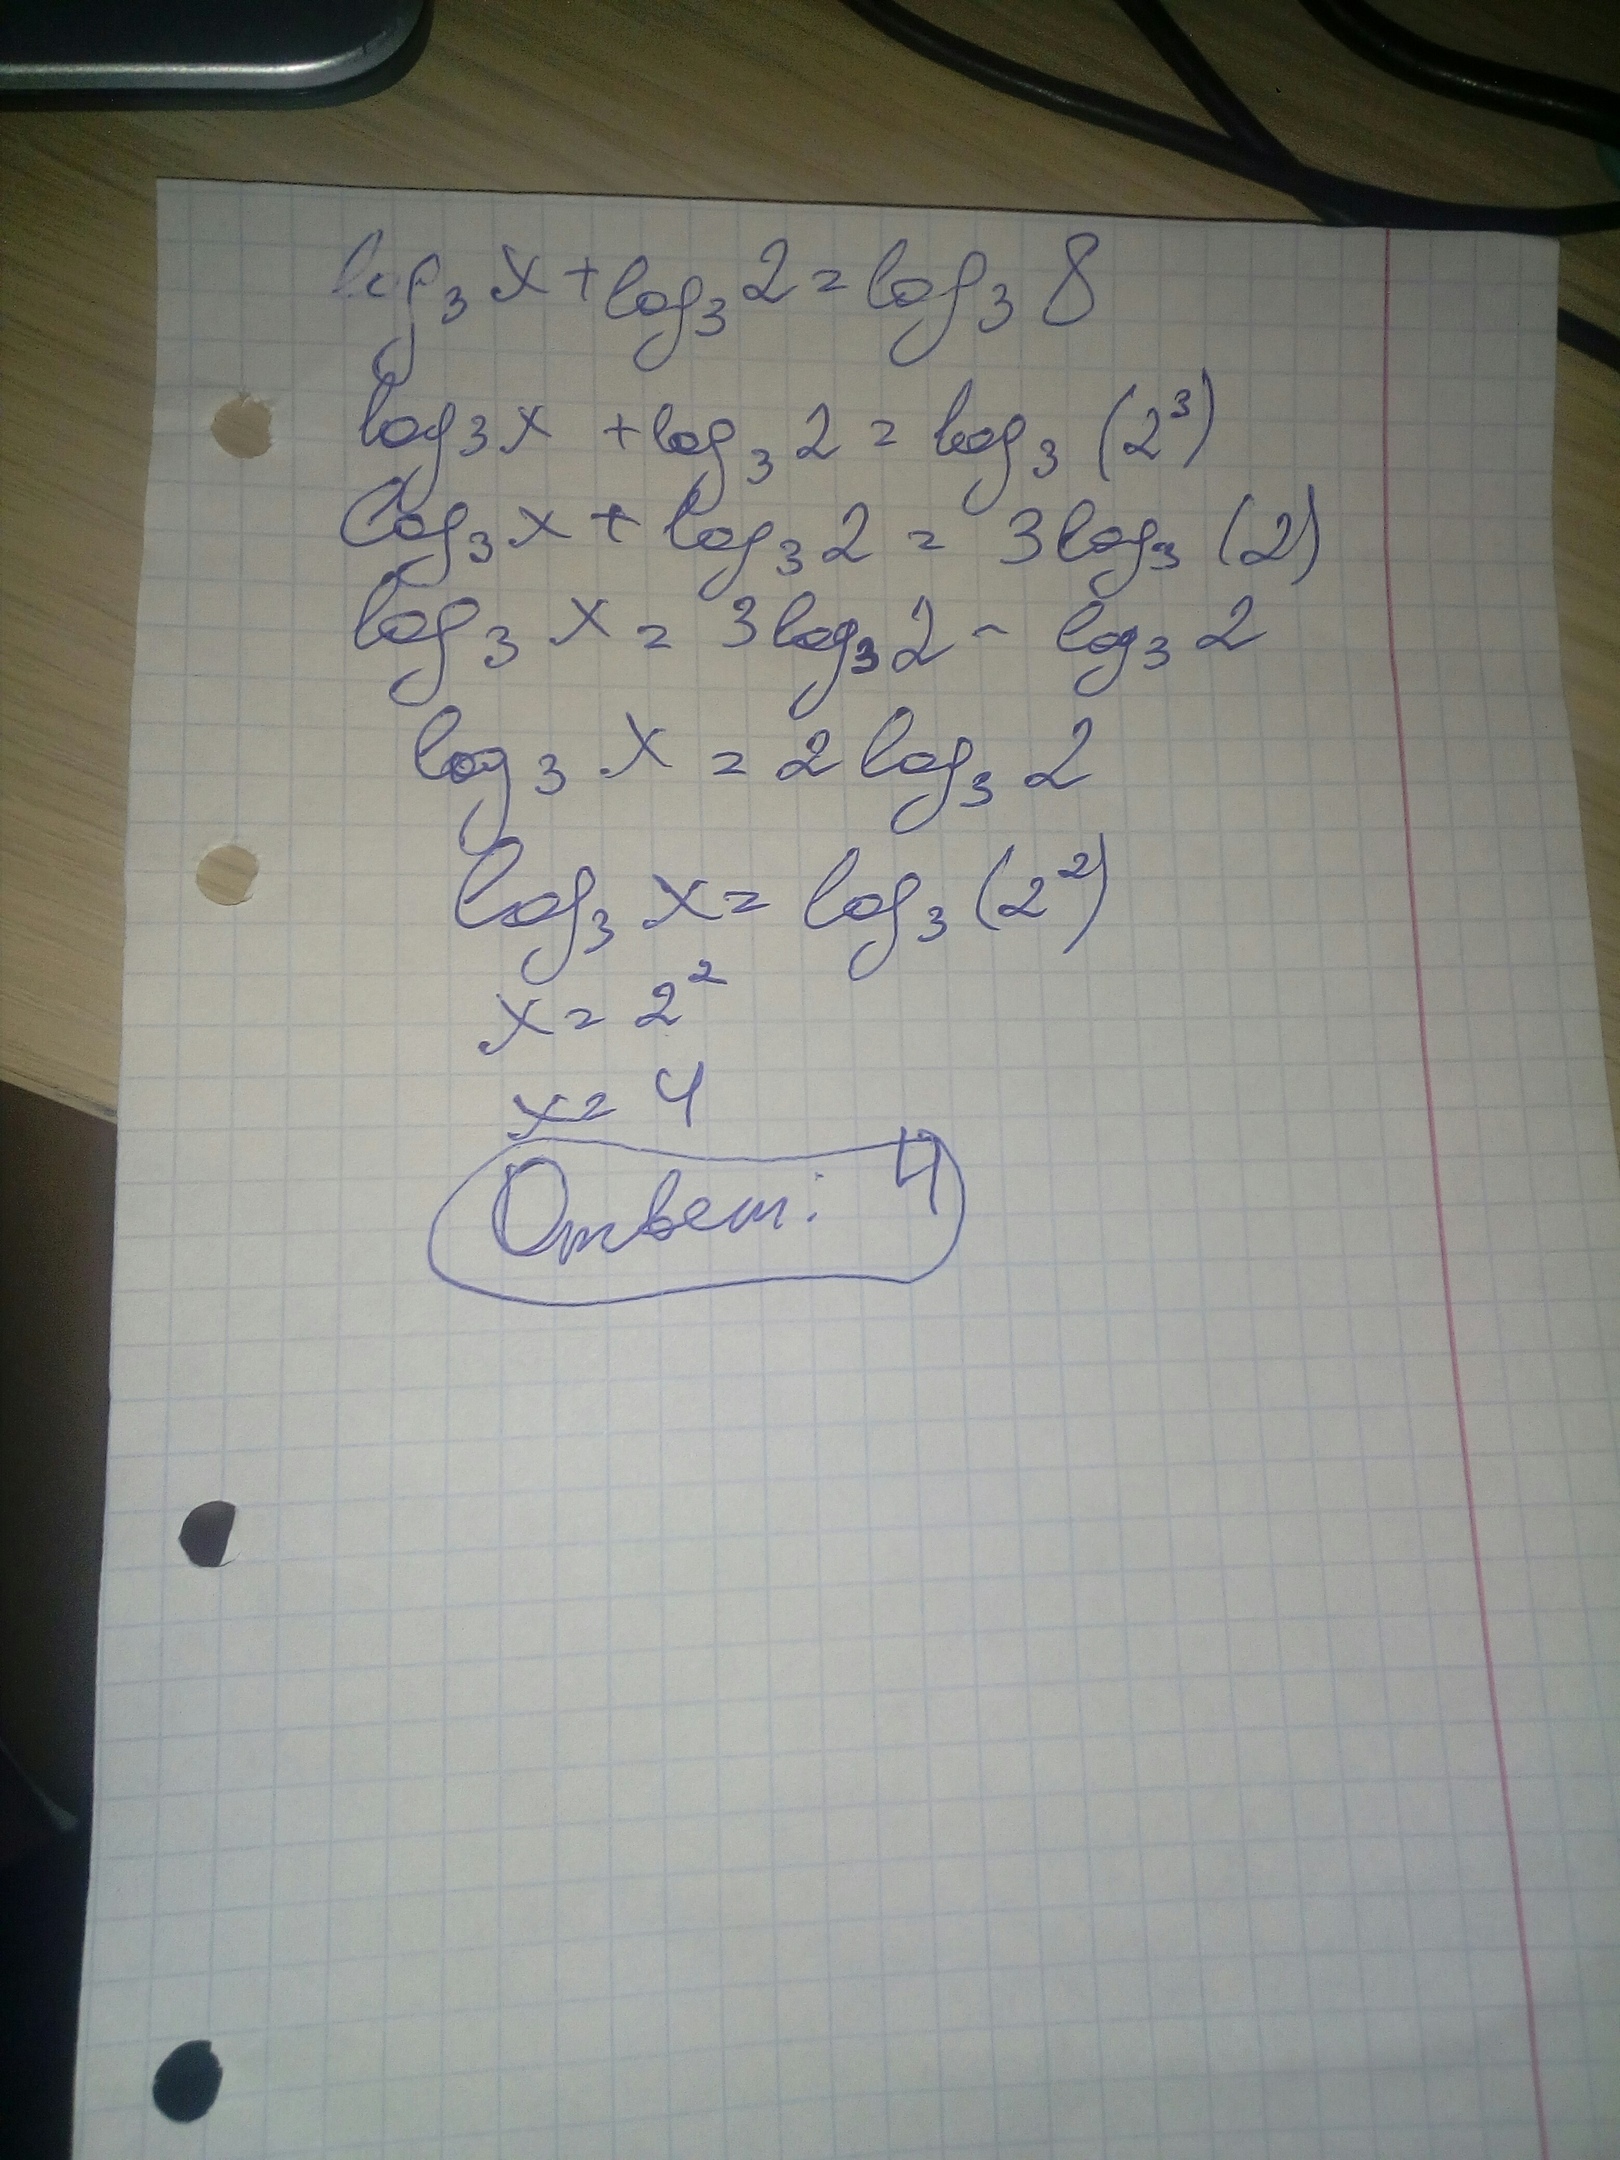 log₃ x + log₃ 2 = log₃ 8
log₃ x + log₃ 2 = log₃ (2³)
log₃ x + log₃ 2 = 3 log₃ (2)
log₃ x = 3 log₃ 2 - log₃ 2
log₃ x = 2 log₃ 2
log₃ x = log₃ (2²)
x = 2²
x = 4
Ответ: 4